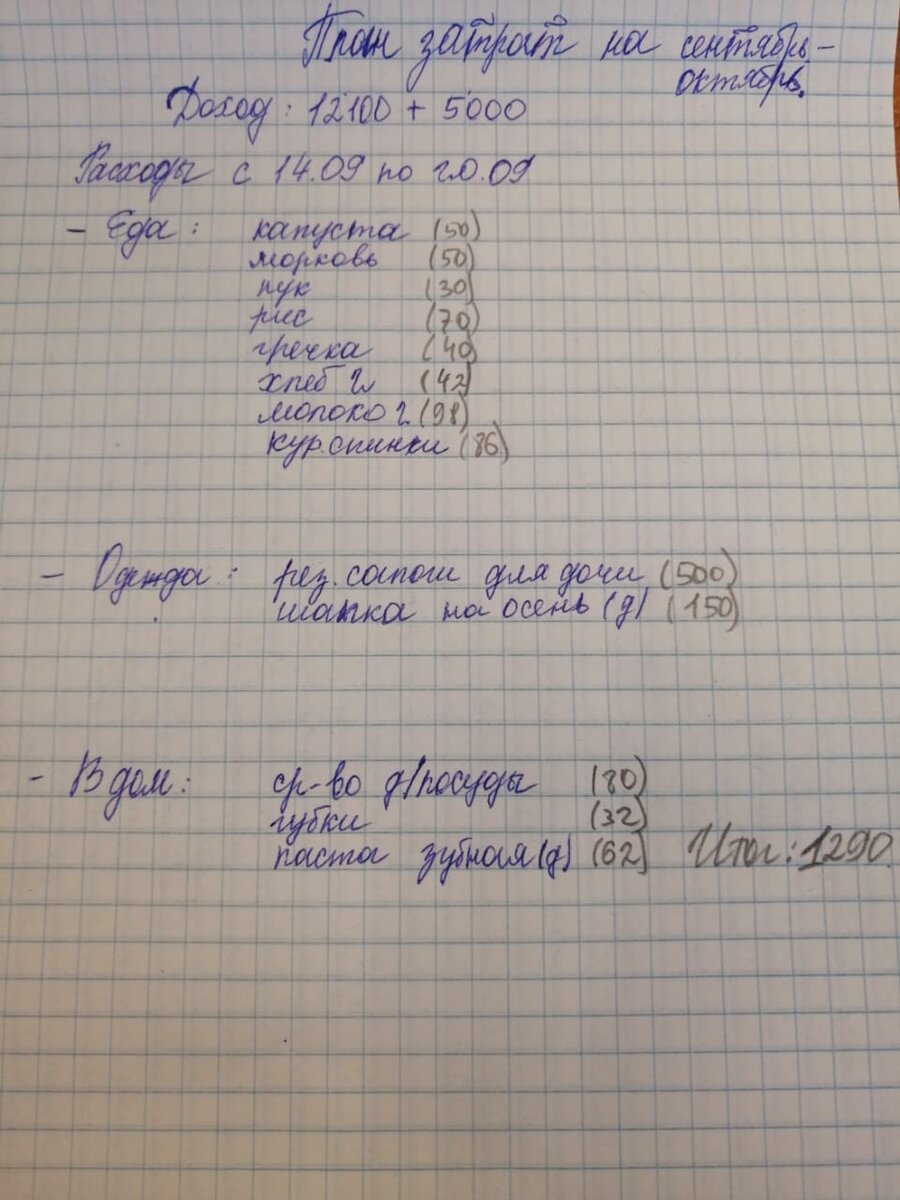 План затрат на сентябрь-
октябрь.
Доход: 12100 + 5000
Расходы с 14.09 по 20.09
- Еда: капуста (50)
морковь (50)
лук (30)
рис (70)
гречка (40)
хлеб 2 (42)
молоко 2 (98)
кур.спинки (86)
- Одежда: рез.сапоги для дочи (500)
шапка на осень (д) (150)
- В дом: ср-во д/посуды (80)
губки (32)
паста зубная (д) (62) Итог: 1290